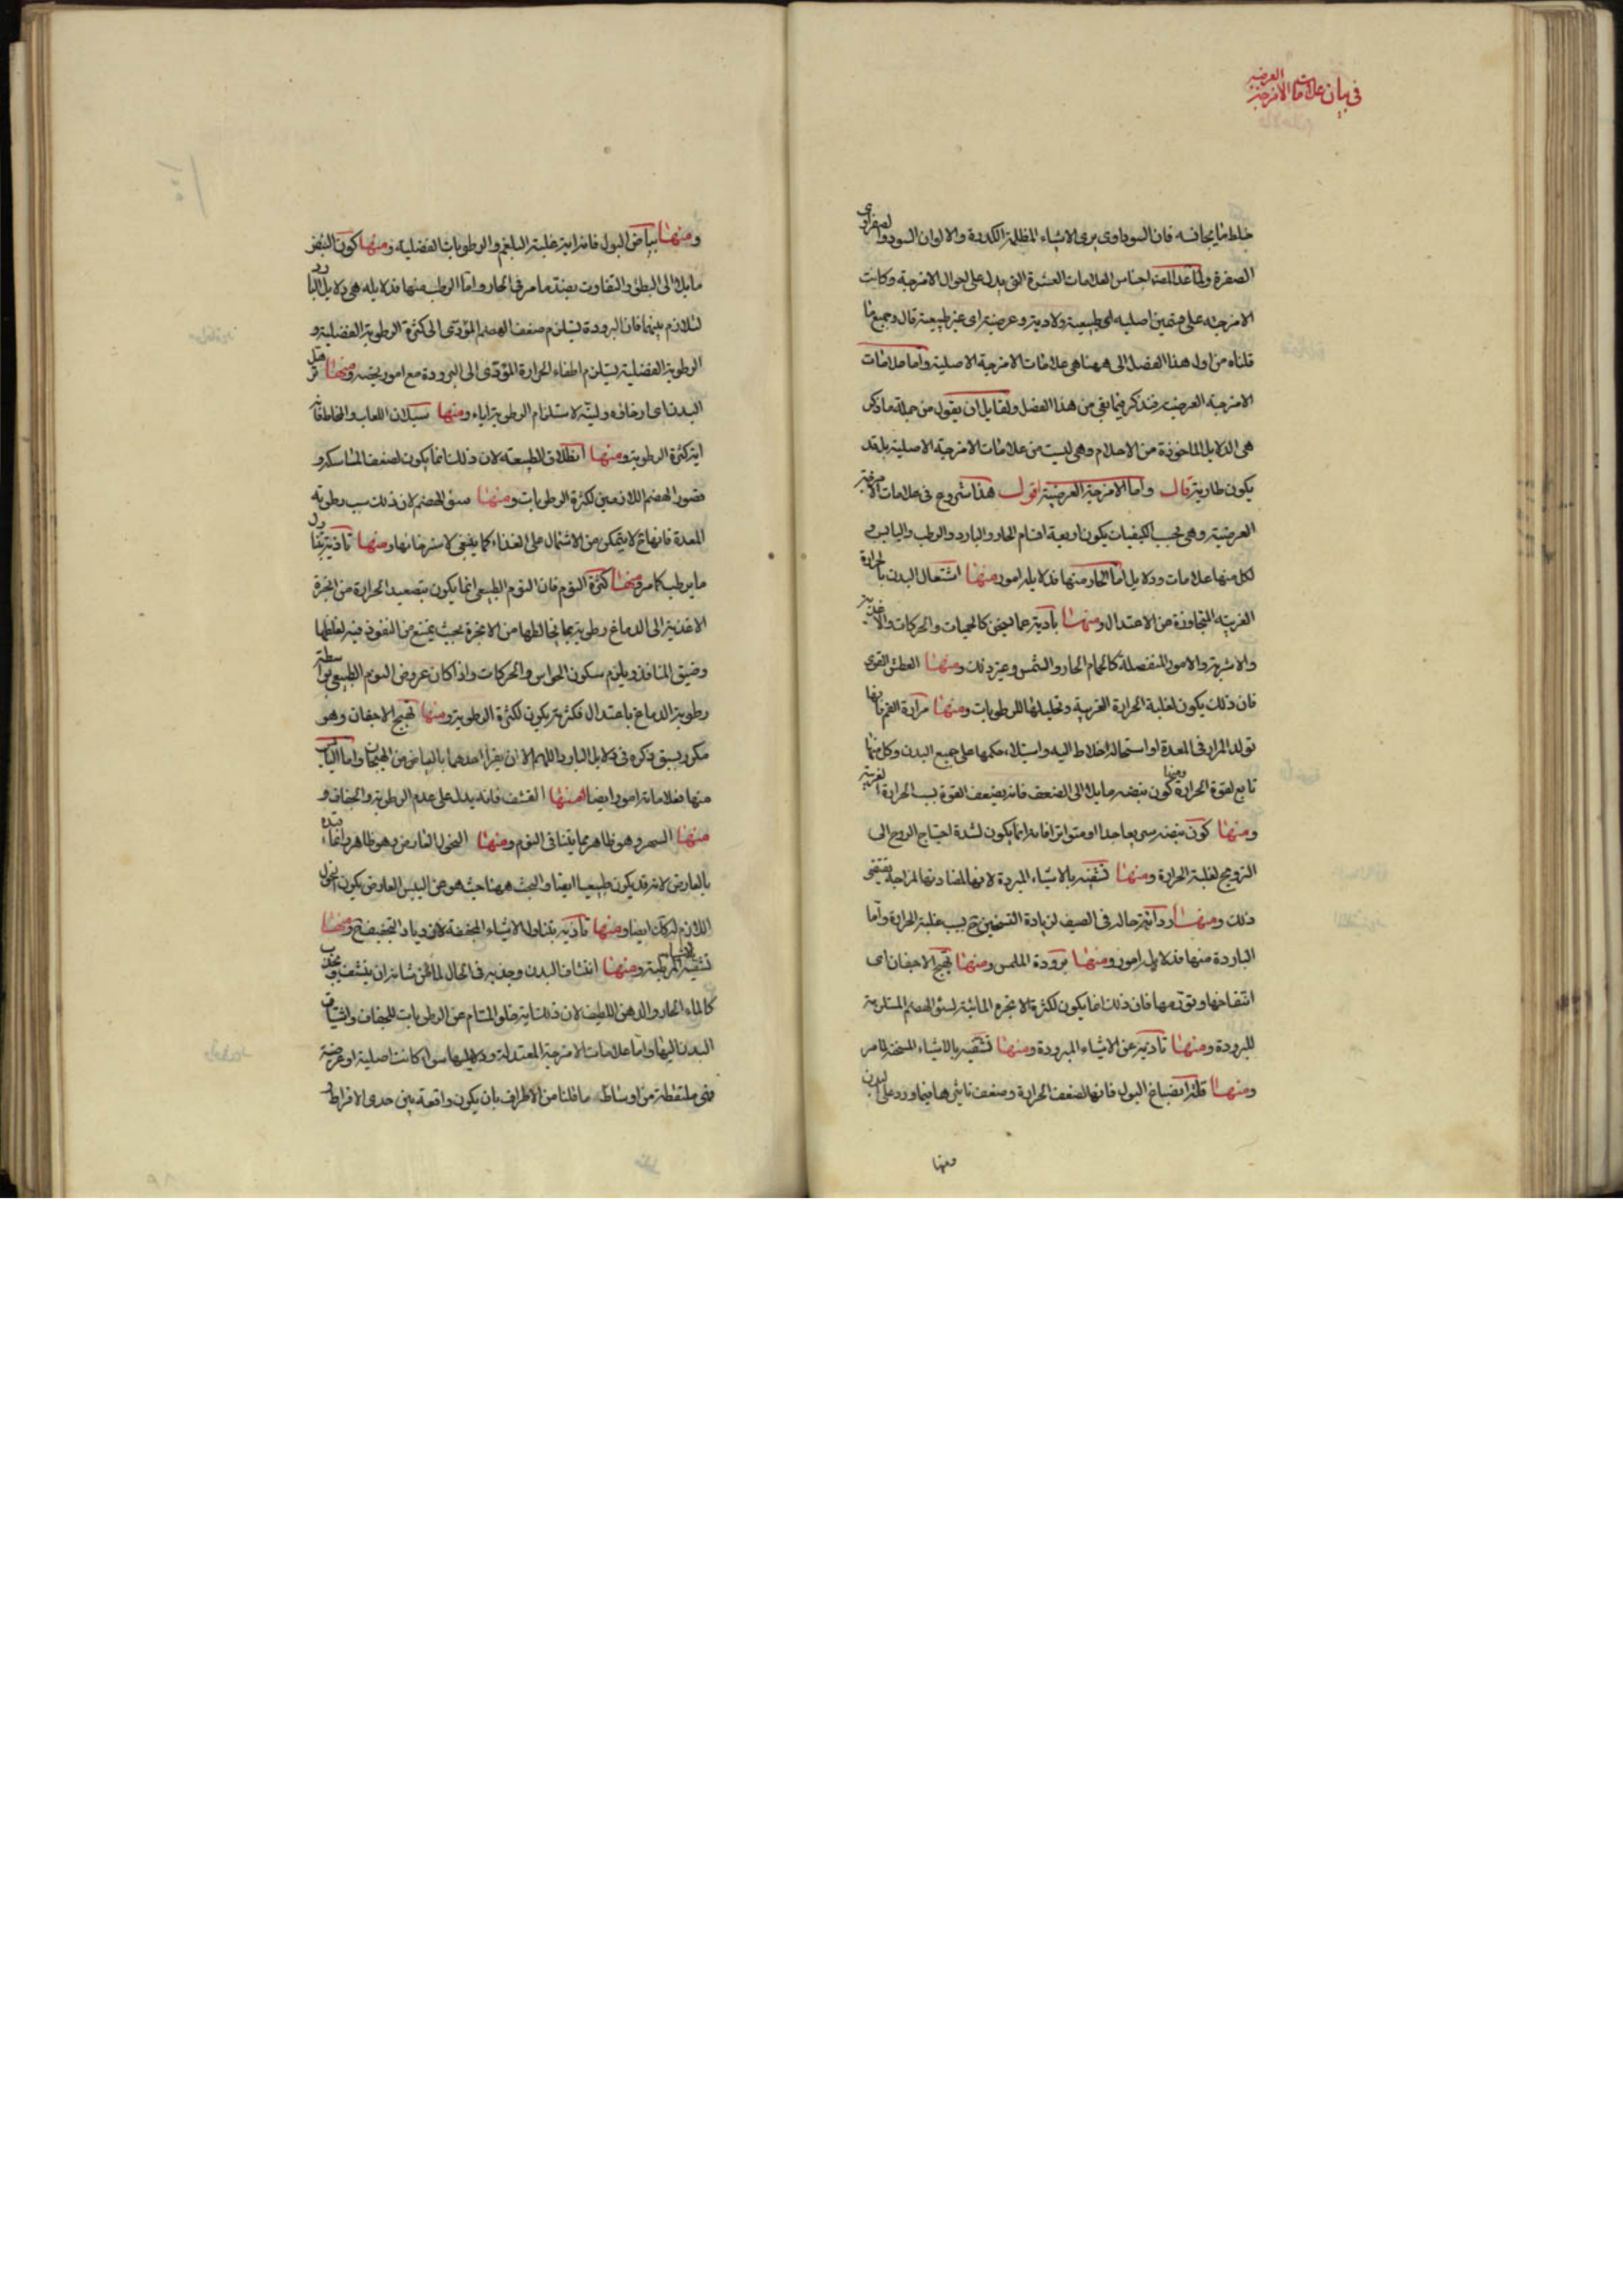 في بيان علامات الامزجة العرضية
خلط ما يجانسه فان السوداوي يرى الاشياء المظلمة الكدرة والالوان السود والصفراوي
الصفرة ولما عد المص اجناس العلامات العشرة التي يدل على احوال الامزجة وكانت
الامزجة على قسمين اصلية اي طبيعية ولادية وعرضية اي غير طبيعية قال وجميع ما
قلناه من اول هذا الفصل الى ههنا هي علامات الامزجة الاصلية واما علامات
الامزجة العرضية فنذكر فيما بقي من هذا الفصل ولقايل ان يقول من جملة ما ذكر
هي الدلايل الماخوذة من الاحلام وهي ليست من علامات الامزجة الاصلية بل قد
يكون طارية قال واما الامزجة العرضية اقول هذا شروع في علامات الامزجة
العرضية وهي بحسب الكيفيات يكون اربعة اقسام الحار والبارد والرطب واليابس و
لكل منها علامات ودلايل اما الحار منها فدلايله امور منها اشتعال البدن بالحرارة
الغريبة المتجاوزة عن الاعتدال ومنها تأذيه عما يسخن كالحميات والحركات والاغذية
والاشربة والامور المنفصلة كالحمام الحار والشمس وغير ذلك ومنها العطش القوي
فان ذلك يكون لغلبة الحرارة الغريبة وتحليلها للرطوبات ومنها مرارة الفم فانها
تولد المرار في المعدة او استحالة اخلاط اليه واستيلاء حكمها على جميع البدن وكل منهما
تابع لقوة الحرارة ومنها كون نبضه مايلا الى الضعف فانه يضعف القوة بسبب الحرارة الغريبة
ومنها كون نبضه سريعا جدا او متواترا فانه انما يكون لشدة احتياج الروح الى
الترويح لغلبة الحرارة ومنها تشفيه بالاشياء المبردة لانها لمضادتها لمزاجه يقتضي
ذلك ومنها رداءة حاله في الصيف لزيادة التسخين ح بسبب غلبة الحرارة واما
الباردة منها فدلايله امور ومنها برودة الملمس ومنها تهيج الاجفان اي
انتفاخها وتورمها فان ذلك انما يكون لكثرة الابخرة المائية لسوء الهضم المستلزمة
للبرودة ومنها تأذيه عن الاشياء المبرودة ومنها تشفيه بالاشياء المسخنة لما مر
ومنها قلة انصباغ البول فانها لضعف الحرارة وضعف تاثيرها فيما ورد على البدن
ومنها
ومنها بياض البول فانه اية غلبة البلغم والرطوبات الفضلية ومنها كون النبض
مايلا الى البطئ والتفاوت بضد ما مر في الحار واما الرطب منها فدلايله هي دلايل البارد
لتلازم بينهما فان البرودة يستلزم ضعف الهضم المؤدي الى كثرة الرطوبة الفضلية و
الرطوبة الفضلية يستلزم اطفاء الحرارة المؤدي الى البرودة مع امور يخصه ومنها ترهل
البدن اي ارخائه ولينه لاستلزام الرطوبة اياه ومنها سيلان اللعاب والمخاط فانه
اية كثرة الرطوبة ومنها انطلاق الطبيعة لان ذلك انما يكون لضعف الماسكة و
قصور الهضم اللازمين لكثرة الرطوبات ومنها سوء الهضم لان ذلك بسبب رطوبة
المعدة فانها ح لا يتمكن من الاشتمال على الغذاء كما ينبغي لاسترخائها ومنها تأذيه بتناول
ما يرطب كما مر ومنها كثرة النوم فان النوم الطبيعي انما يكون بتصعيد الحرارة من ابخرة
الاغذية الى الدماغ رطوبة يخالطها من الابخرة بحيث يمنع من النفوذ فيه لغلظها
وضيق المنافذ ويلزم سكون الحواس والحركات واذا كان عروض النوم الطبيعي بواسطة
رطوبة الدماغ باعتدال فكثرته يكون لكثرة الرطوبة ومنها تهيج الاجفان وهو
مكرر سبق ذكره في دلايل البارد اللهم الا ان يقرأ احدهما بالباء من الهيجان واما اليابس
منها فعلاماته امور ايضا فمنها القشف فانه يدل على عدم الرطوبة والجفاف و
منها السهر وهو ظاهر مما بينا في النوم ومنها النحول العارض وهو ظاهر وانما قيده
بالعارض لانه قد يكون طبيعيا ايضا والبحث ههنا حيث هو عن اليبس العارض يكون النحول
اللازم له كذلك ايضا ومنها تأذيه بتناول الاشياء المجففة لازدياد التجفيف ح ومنها
تشفيه بالاشياء المرطبة ومنها انتشاف البدن وجذبه في الحال لما من شانه ان ينشف ويجذب
كالماء الحار والدهن اللطيف لان ذلك اية خلو المسام عن الرطوبات للجفاف واشتياق
البدن اليها واما علامات الامزجة المعتدلة ودلايلها سواء كانت اصلية او عرضية
فهي ملتقطة من اوساط ما قلنا من الاطراف بان يكون واقعة بين حدي الافراط و